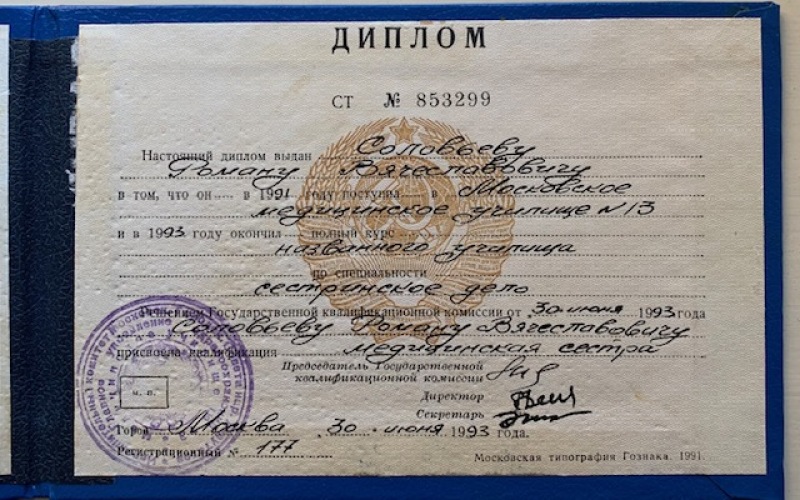 ДИПЛОМ
СТ № 853299
Настоящий диплом выдан Соловьеву
Роману Вячеславовичу
в том, что он в 1991 году поступил в Московское
медицинское училище N 13
и в 1993 году окончил полный курс
названного училища
по специальности
сестринское дело
Решением Государственной квалификационной комиссии от 30 июня 1993 года
Соловьеву Роману Вячеславовичу
присвоена квалификация медицинская сестра
Председатель Государственной
квалификационной комиссии
Директор
Секретарь
м. п.
Город Москва 30 июня 1993 года.
Регистрационный № 177
Московская типография Гознака. 1991.